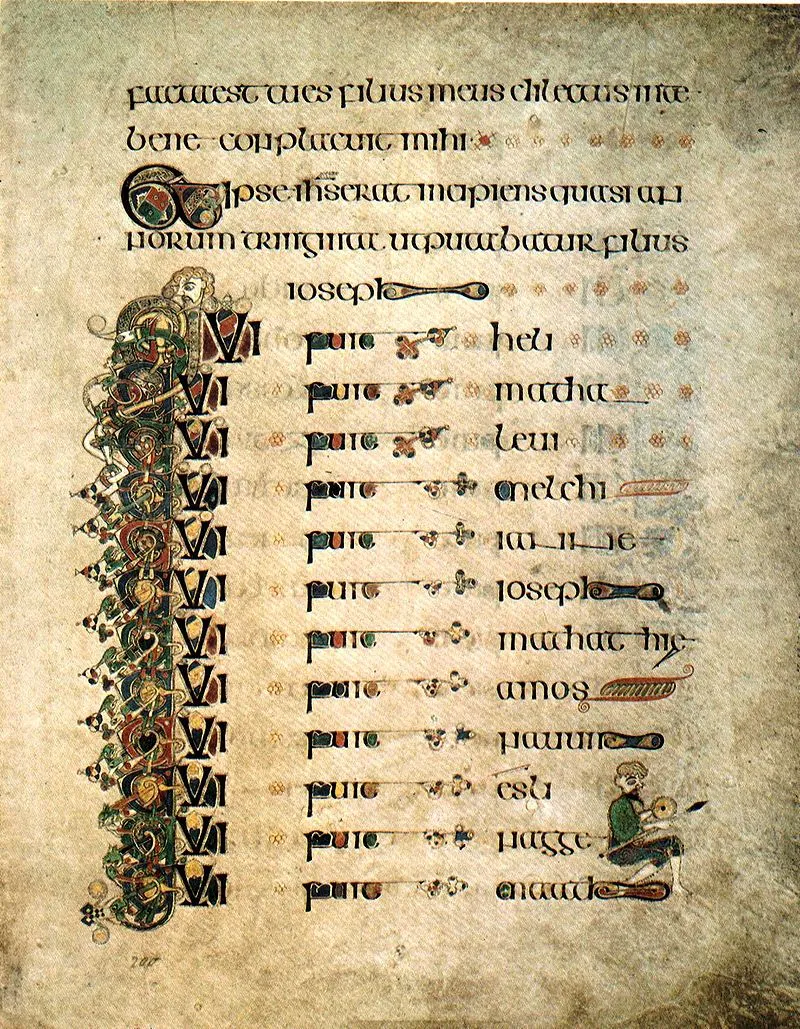 facta est tu es filius meus dilectus in te
bene conplacuit mihi
Et ipse ihs erat incipiens quasi an
norum triginta ut putabatur filius
ioseph
QUI fuit heli
QUI fuit matha
QUI fuit leui
QUI fuit melchi
QUI fuit ianne
QUI fuit ioseph
QUI fuit mathathie
QUI fuit amos
QUI fuit nauum
QUI fuit esli
QUI fuit nagge
QUI fuit maath
200